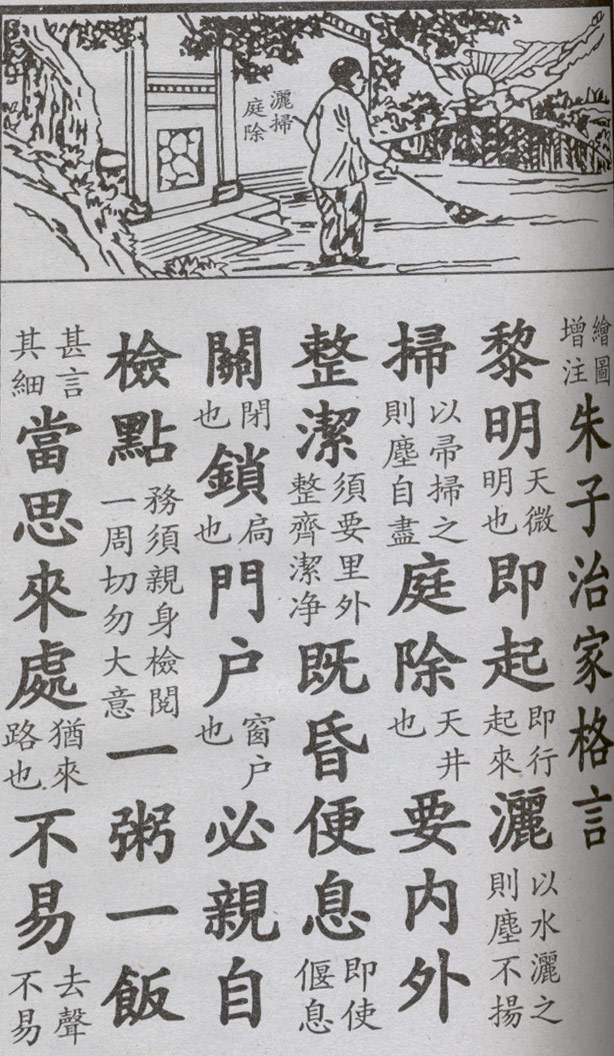 灑掃
庭除
繪圖增注朱子治家格言
黎明天微明也即起即行起來灑以水灑之則塵不揚
掃以帚掃之則塵自盡庭除天井也要内外
整潔須要里外整齊潔净既昏便息即使偃息
關閉也鎖扃也門户窗户也必親自
檢點務須親身檢閲一周切勿大意一粥一飯
甚言其細當思來處猶來路也不易去聲不易